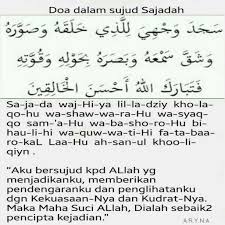 Doa dalam sujud Sajadah
سَجَدَ وَجْهِيَ لِلَّذِي خَلَقَهُ وَصَوَّرَهُ
وَشَقَّ سَمْعَهُ وَبَصَرَهُ بِحَوْلِهِ وَقُوَّتِهِ
فَتَبَارَكَ اللهُ أَحْسَنُ الْخَالِقِينَ
Sa-ja-da waj-Hi-ya lil-la-dziy kho-la-
qo-hu wa-shaw-wa-ra-Hu wa-syaq-
qo sam-'a-Hu wa-ba-sho-ro-Hu bi-
hau-li-hi wa-quw-wa-ti-Hi fa-ta-baa-
ro-kaL Laa-Hu ah-san-ul khoo-li-
qiyn .
"Aku bersujud kpd ALlah yg
menjadikanku, memberikan
pendengaranku dan penglihatanku
dgn Kekuasaan-Nya dan Kudrat-Nya.
Maka Maha Suci ALlah, Dialah sebaik2
pencipta kejadian."
ARYNA